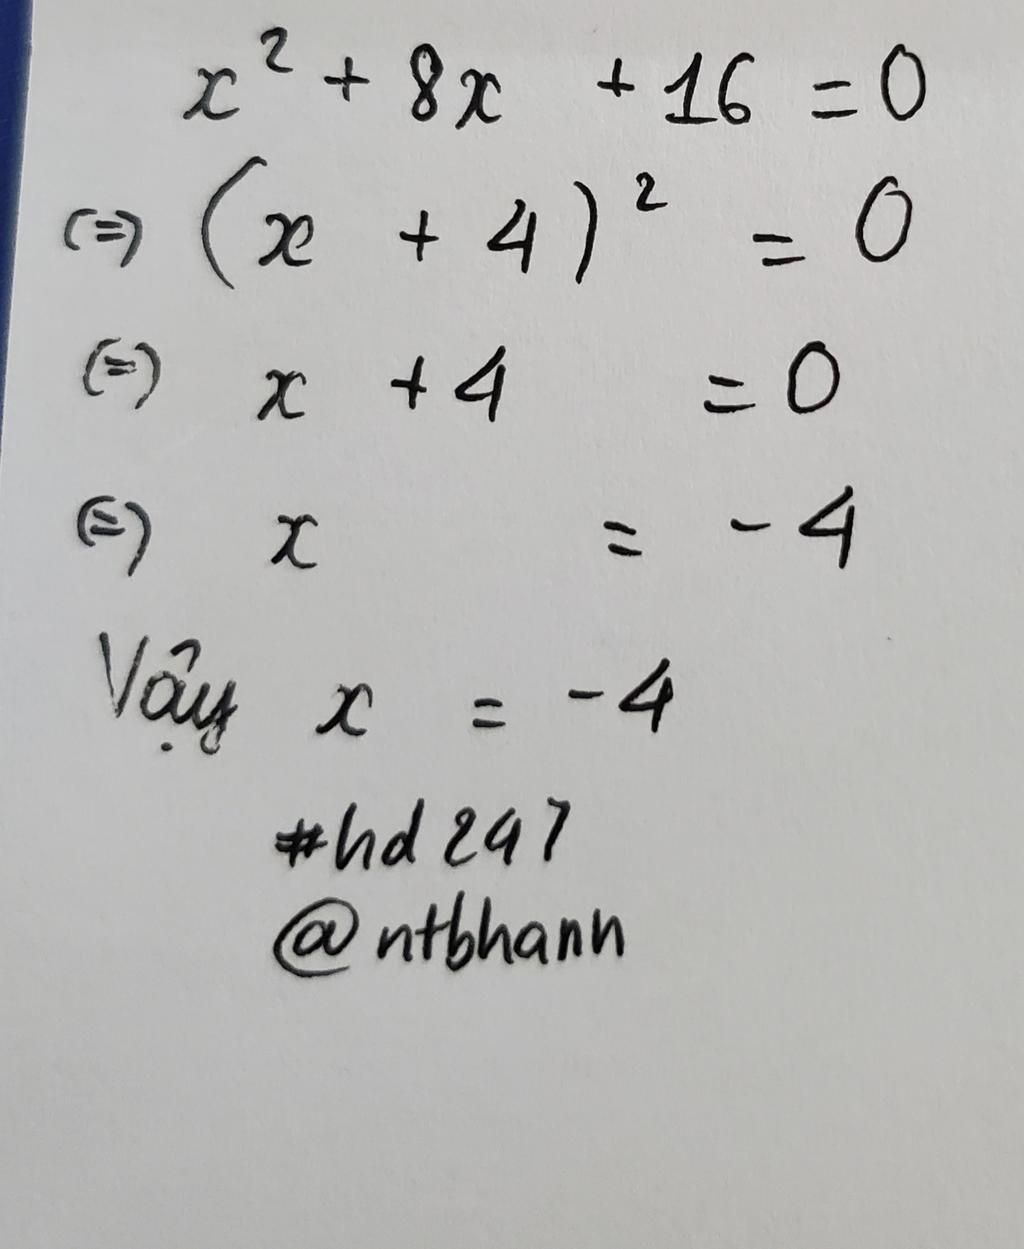 x² + 8x + 16 = 0
(=) (x + 4)² = 0
(=) x + 4 = 0
(=) x = - 4
Vậy x = - 4
#hd247
@ntbhanh